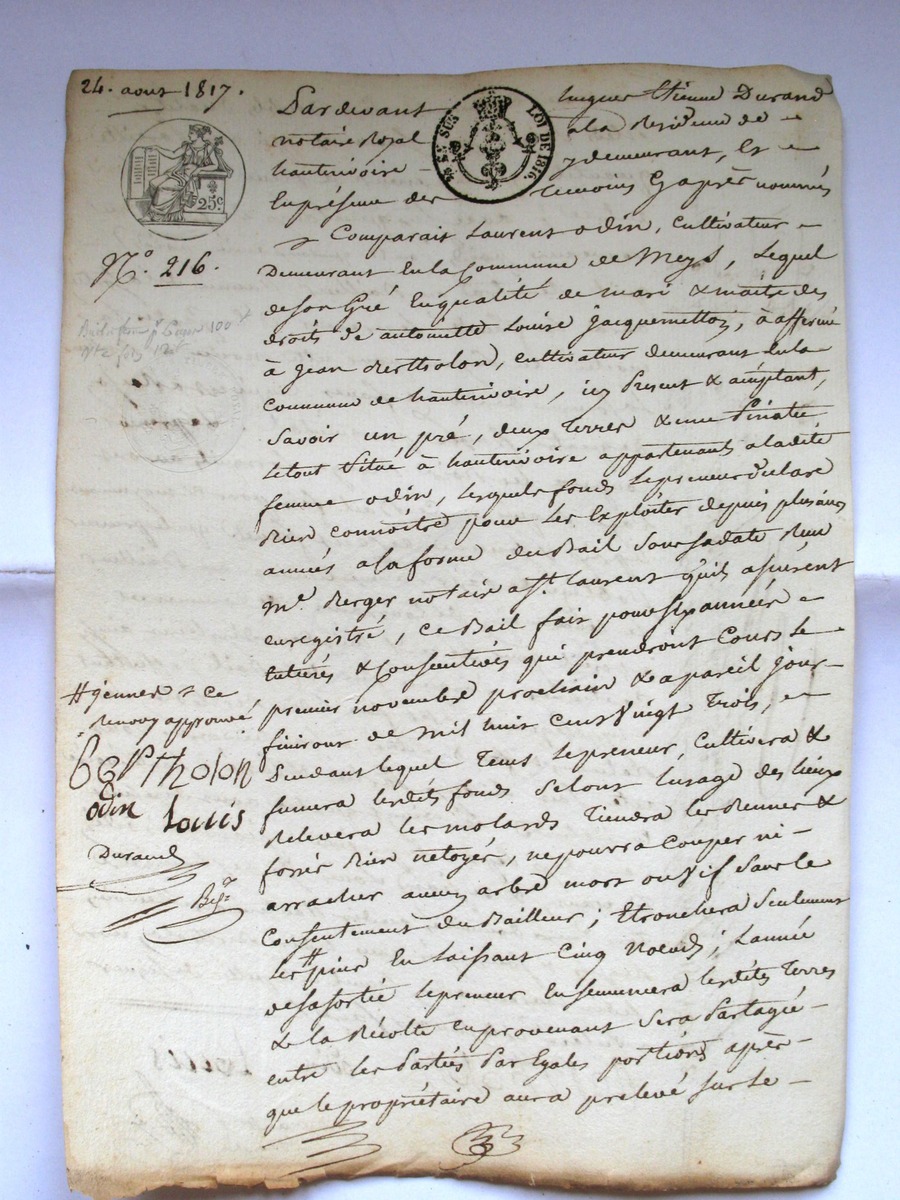 24. aout 1817.
25c
N.o 216.
EN SUS
LOI DE 1816.
Pardevant hugues Etienne Durand
notaire Royal a la Residence de
hauterivoire y demeurant, Et
En présence des temoins Cy après nommés
Comparait Laurent odin, Cultivateur
Demeurant En la Commune de Meys, Lequel
de Son Gré En qualité de mari & maitre des
droits de antoinette Louise jacquemetton, à affermé
à jean Berttholon, cultivateur demeurant En la
Commune de hauterivoire, icy Present & aceptant,
Savoir un pré, deux Terres & une Pinatée
Le tout Situé à hauterivoire appartenants a la dite
femme odin, Lesquels fonds Le preneur declare
Bien connoitre pour Les Exploiter depuis plusieurs
années a la forme du Bail Sous Sa date Reçu
M.e Berger notaire a St. Laurent qu'ils assurent
enregistré, ce Bail fait pour Six années
Entieres & Consecutives qui prendront Cours Le
premier novembre prochain & a pareil jour
finiront de Mil huit Cent Vingt Trois,
Pendant lequel Tems Le preneur, Cultivera &
fumera Lesdits fonds Selon L'usage des Lieux
Relevera Les molards Tiendra Les
fossés Bien netoyés, ne pourra Couper ni
arracher aucun arbre mort ou Vif Sans Le
Consentement du Bailleur; Etronchera Seulement
Les # pins En Laissant Cinq Noeuds; L'année
de Sa Sortie Le preneur Ensemencera Lesdites Terres
& la Récolte en provenant Sera Partagée
entre Les Parties Par Egales portions après
que le propriétaire aura prelevé Sur Le
# jeunes & ce
Renvoy approuvé
Bertholon
odin Louis
Durand